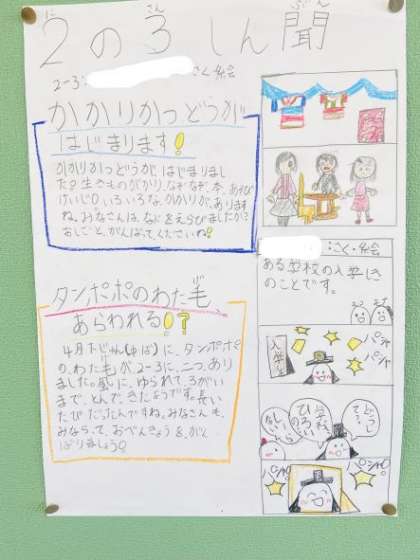 2の3しん聞
にさんぶん
2-3
さく・絵
かかりかつどうが
はじまります!
かかりかつどうが、はじまりまし
た。生きものがかり、なぞなぞ、本、あそび
けいじ。いろいろな、かかりが、あります
ね。みなさんは、なにをえらびましたか?
おしごと、がんばってくださいね!
タンポポのわた毛
あらわれる!?
4月下じゅん(中ば)に、タンポポ
のわた毛が2-3に、二つ、あり
ました。風に、ゆられて、3がい
まで、とんできたようです。長い
たびだったんですね。みなさんも、
みならって、おべんきょうを、がん
ばりましょう。
:さく・絵
ある学校の入学しき
のことです。
入学しき
パシャ
パシャ
学校
ひろい
パシャ
パシャ